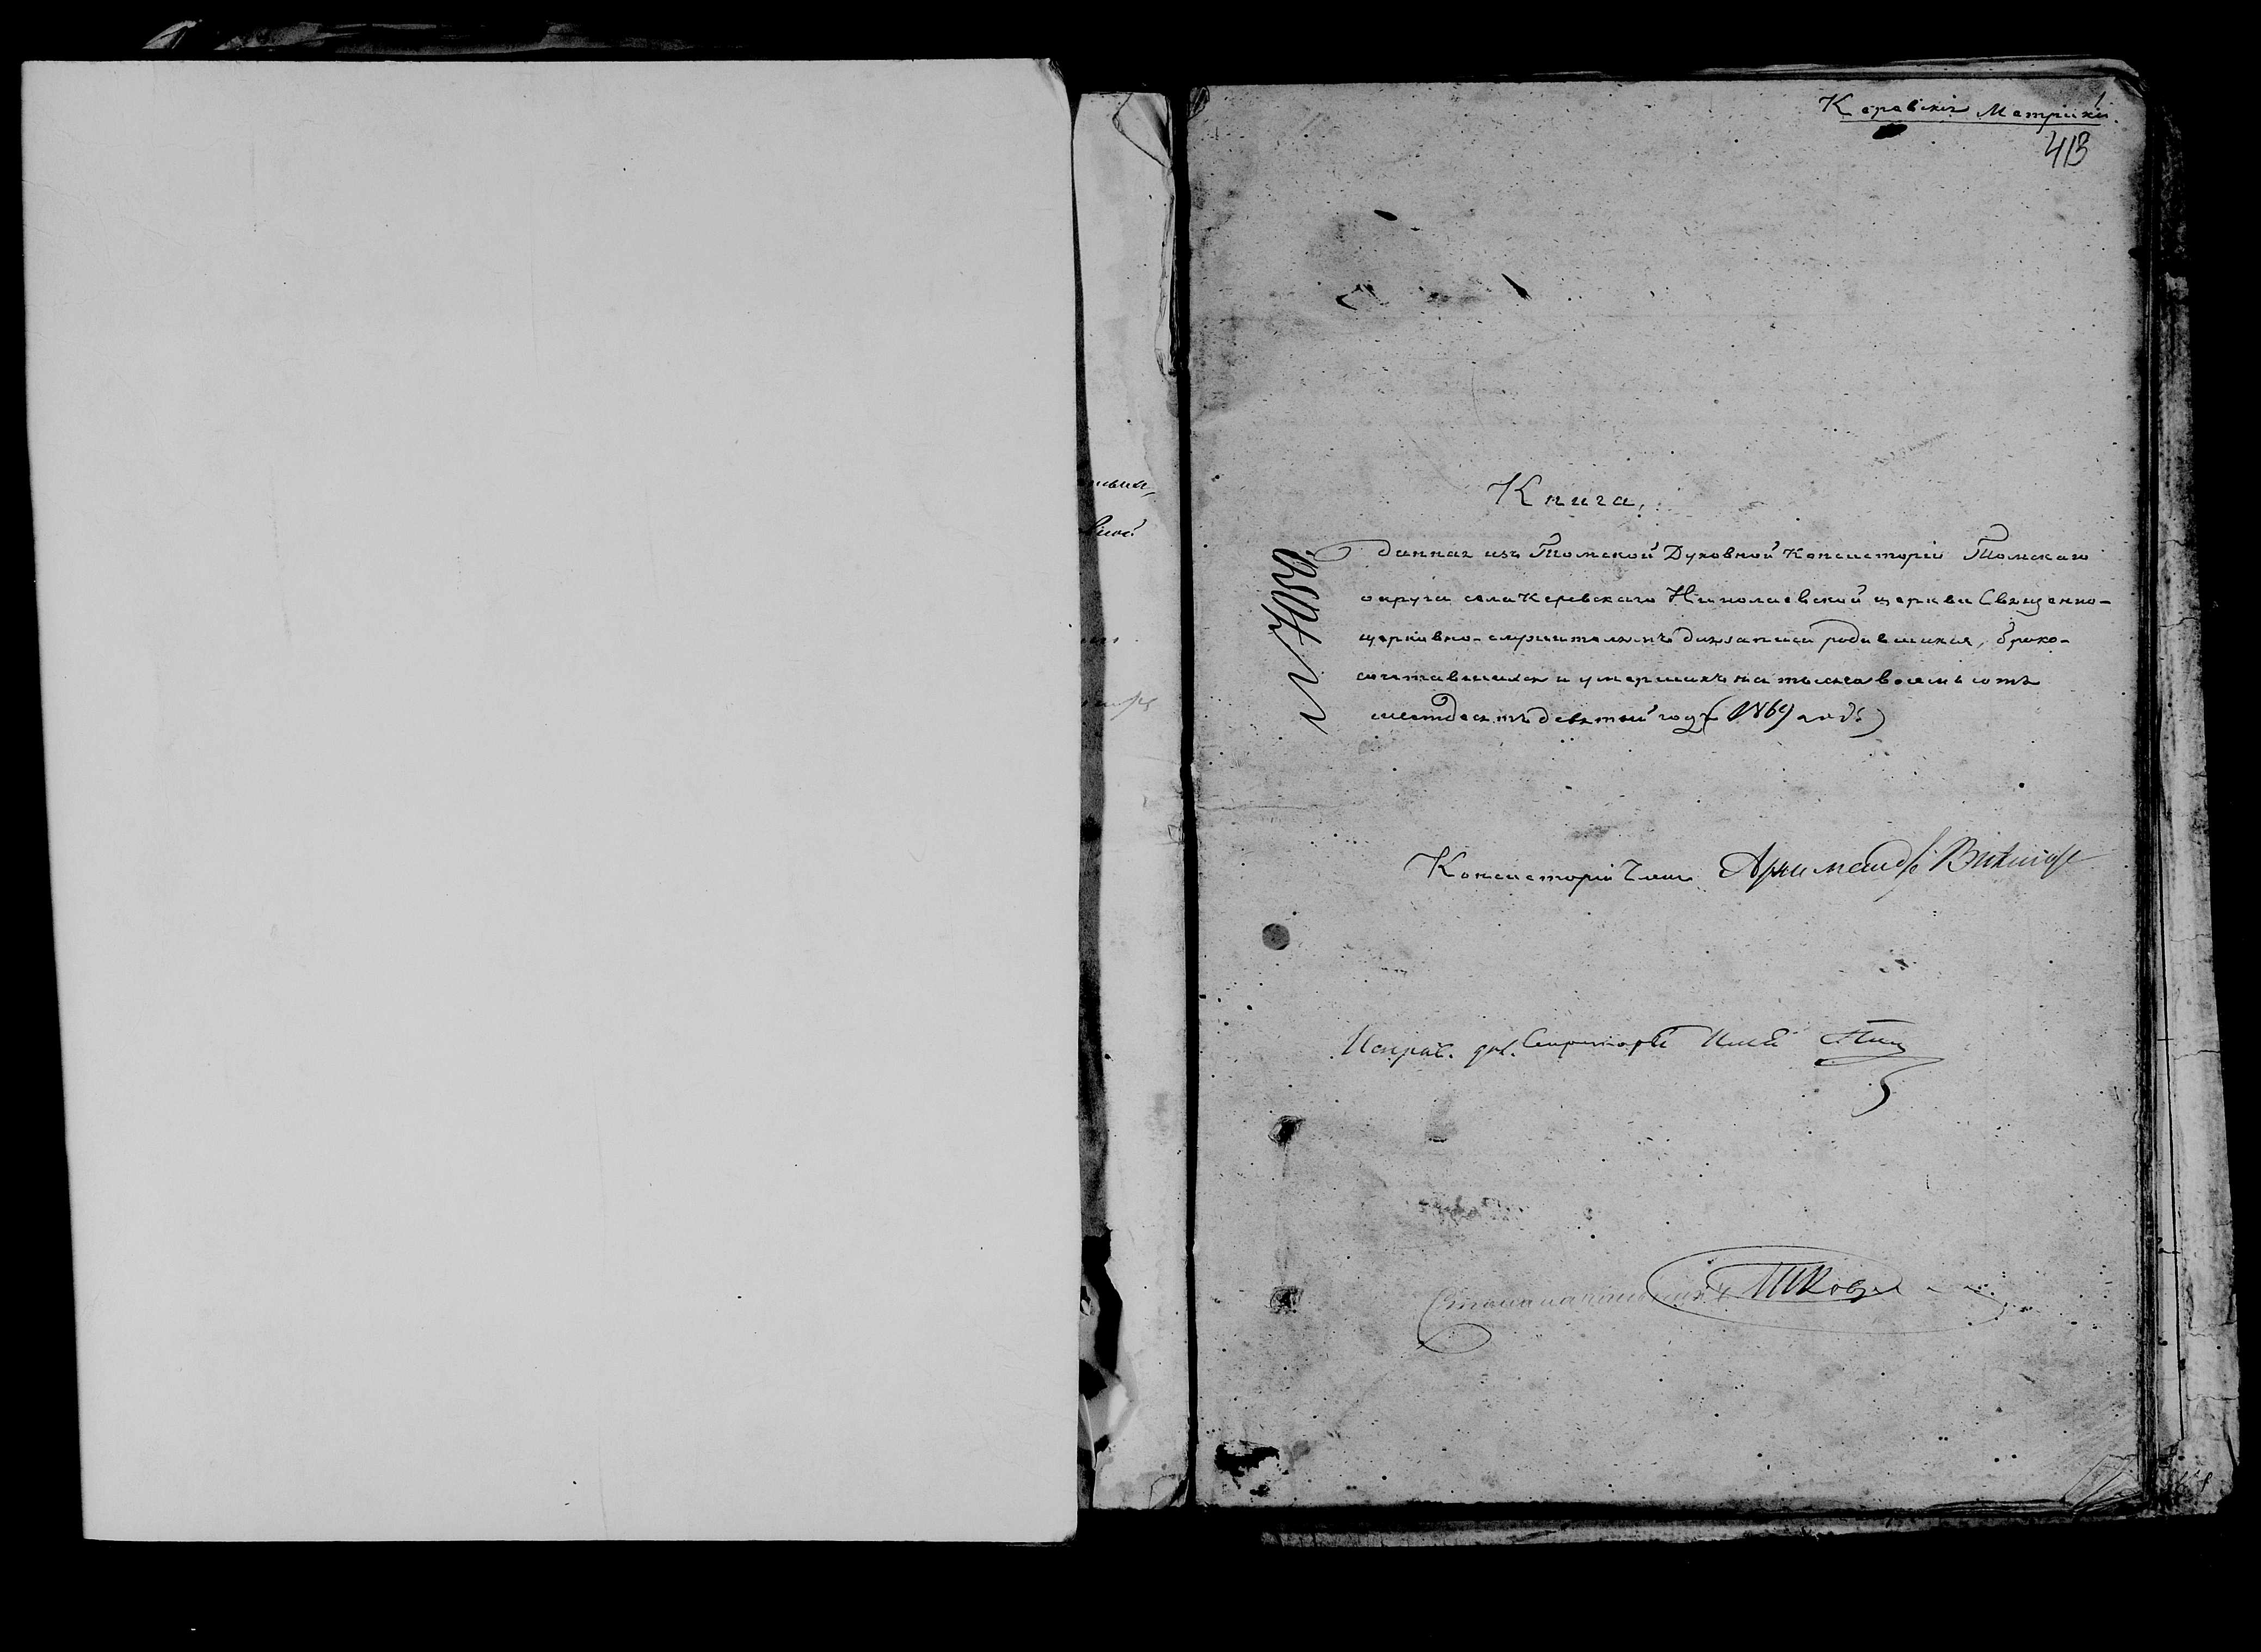 1
Керевскія Метрики.
413
Книга,
данная изъ Томской Духовной Консисторіи Томскаго
округа села Керевскаго Николаевской церкви Священно-
церковно-служителямъ для записи родившихся, брако-
сочетавшихся и умершихъ на тысяча восемь сотъ
шестдесятъ девятый годъ (1869 годъ)
N 7050.
Консисторіи Членъ Архимандр. Викторъ
Исправ. дол. Секретаря
Столоначальникъ